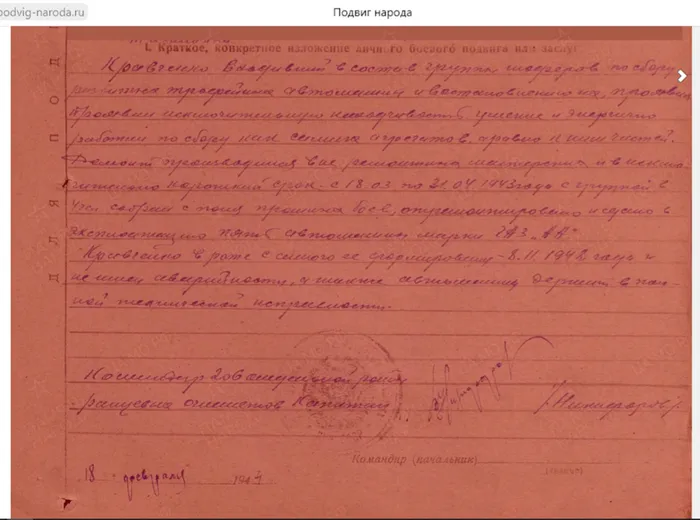 podvig-naroda.ru
Подвиг народа
I. Краткое, конкретное изложение личного боевого подвига или заслуг
Кравченко входивший в состав группы шоферов по сбору
трафейных автомашин и востановлению их, проявил
исключительную находчивость умение и энергично
работал по сбору как самих агрегатов, а равно к ним частей.
Ремонт производился вне ремонтных мастерских и в исклю-
чительно короткий срок – с 18.03 по 21.04 1943 года с группой в
собрали с поля прошлых боев, отремонтировано и сдано в
эксплоатацию пять автомашин марки ГАЗ „АА"
Кравченко в роте с самого ее формирования – 8.11 1942 года и
не имел аварийности, а также автомашину держит в пол-
ной технической исправности.
Командир 206 отдельной роты
огнеметов Капитан
/Никифоров/
Командир (начальник)
18 февраля 1944
ДЛЯ ПОД